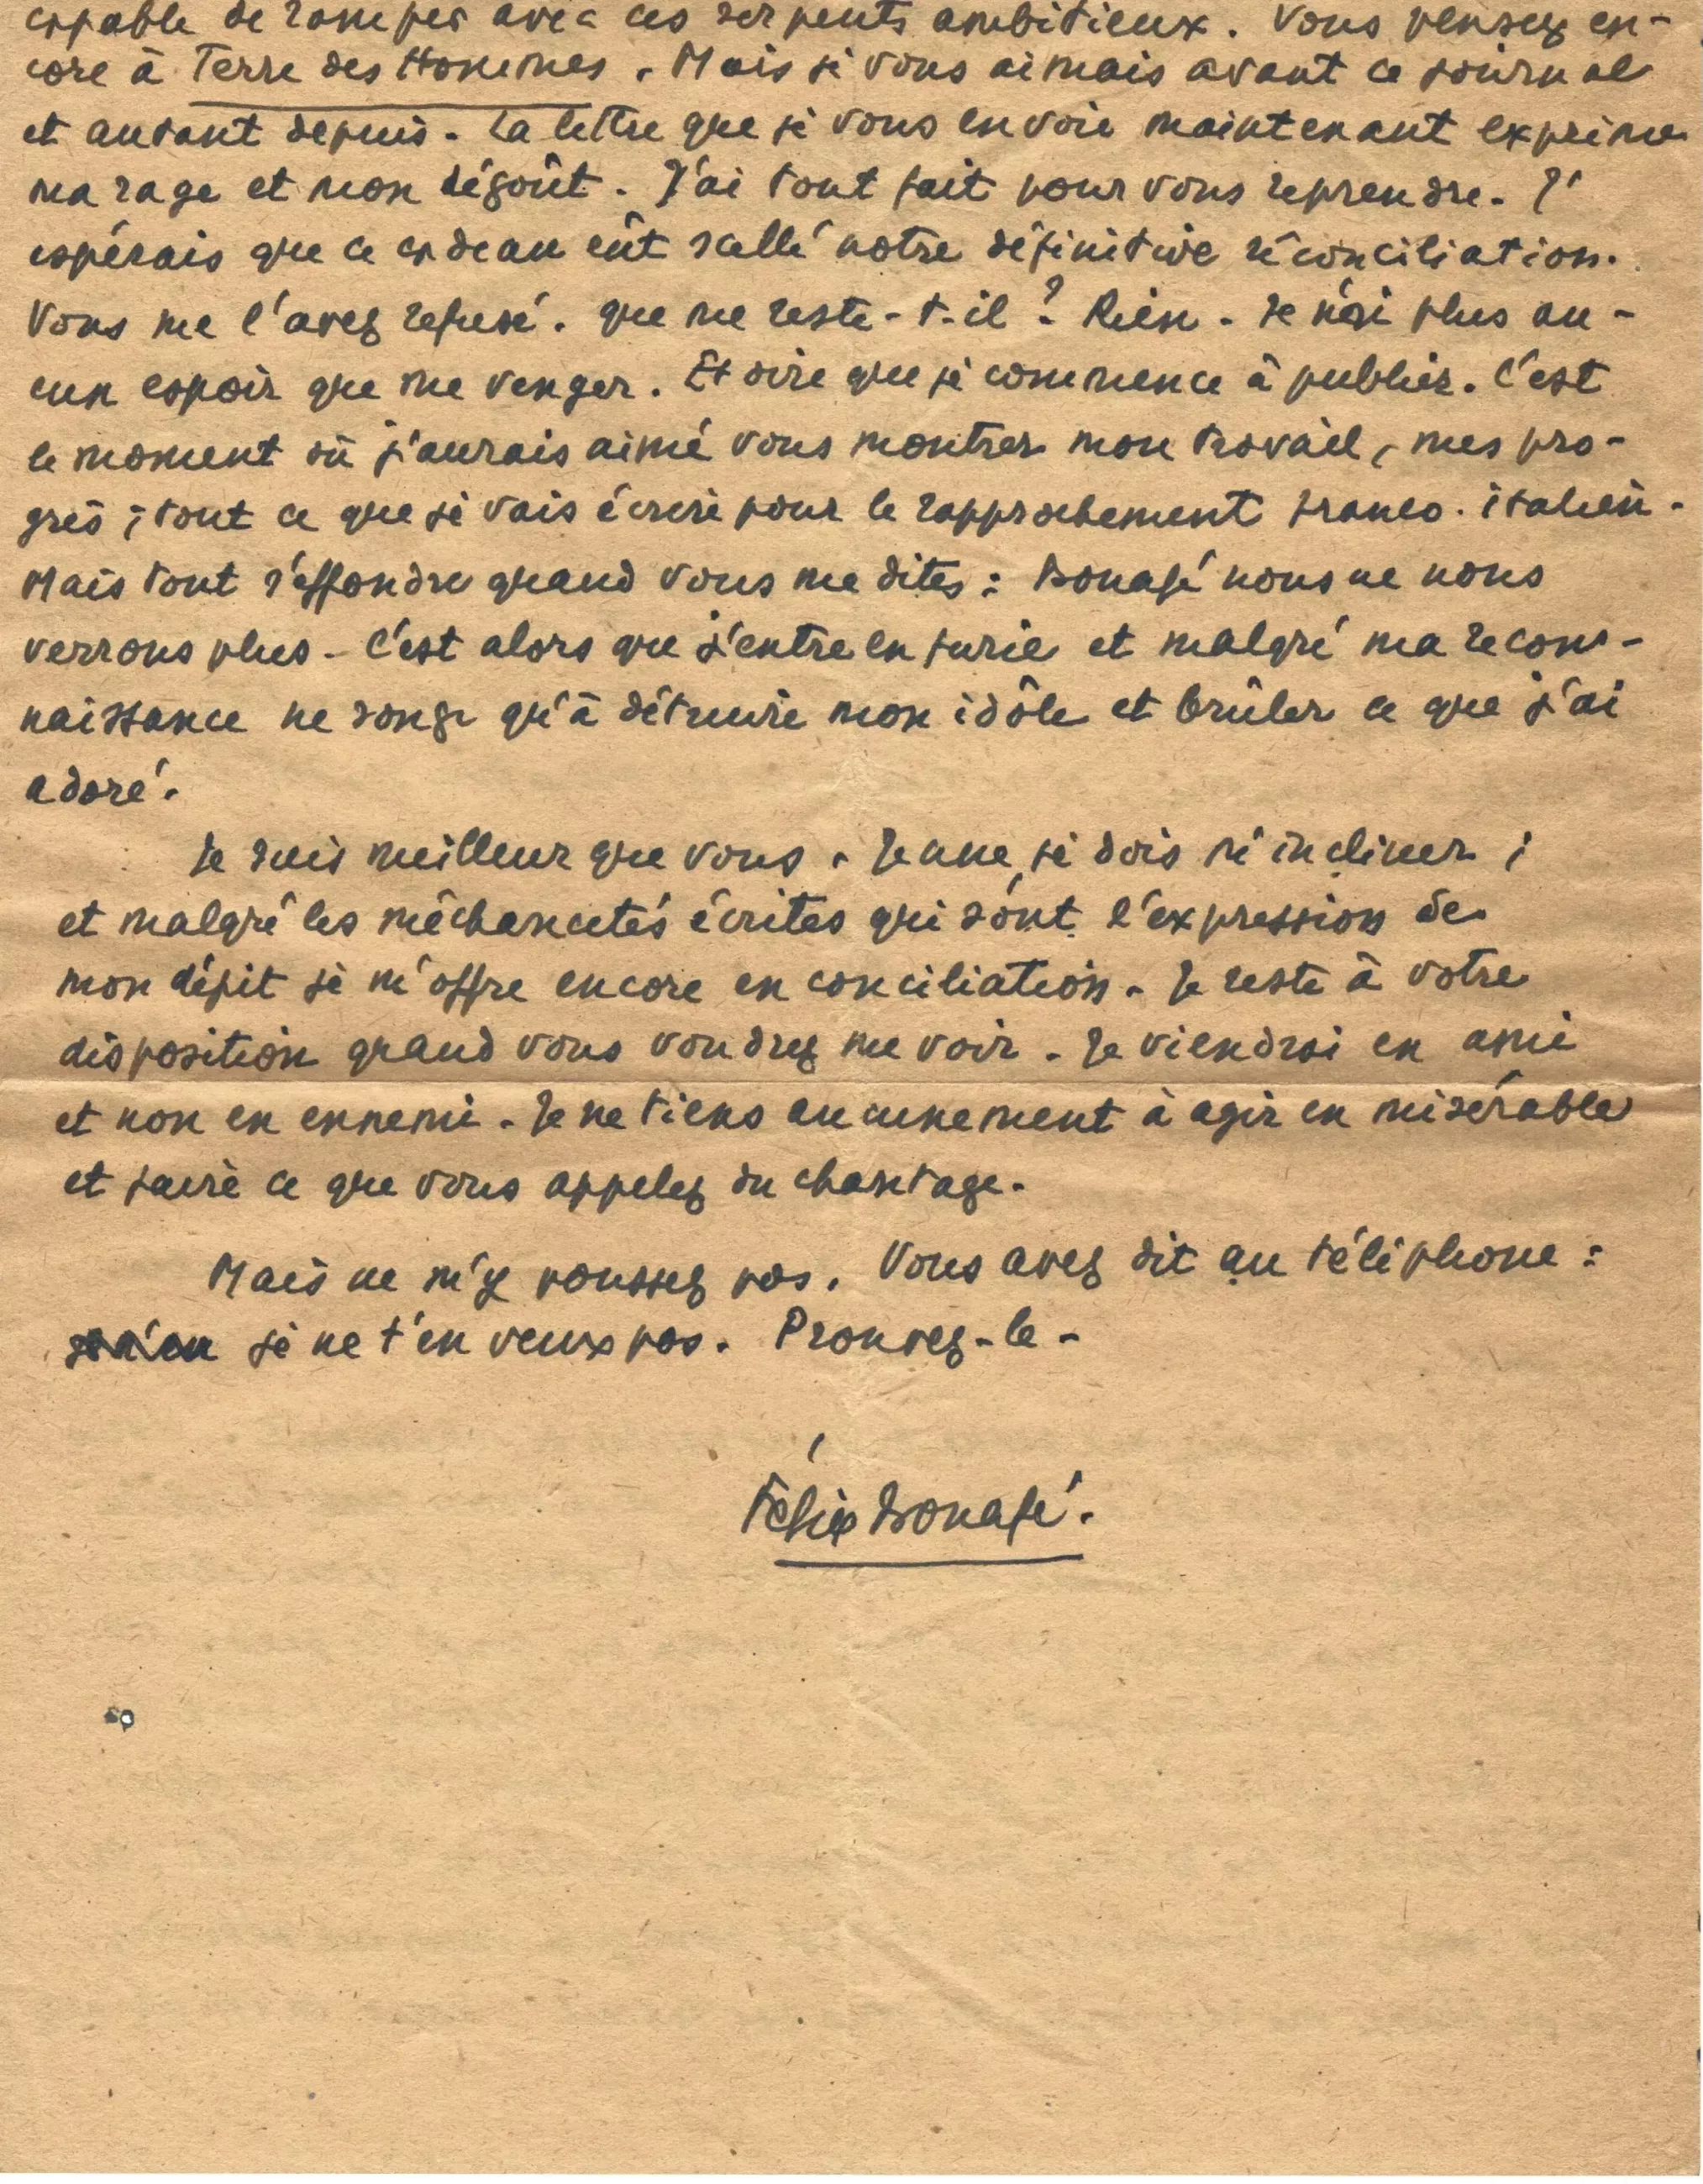 capable de ramper avec ces serpents ambitieux. Vous pensez en-
core à Terre des Hommes. Mais je vous aimais avant ce journal
et autant depuis. La lettre que je vous envoie maintenant exprime
ma rage et mon dégoût. J'ai tout fait pour vous reprendre. J'
espérais que ce cadeau eût scellé notre définitive réconciliation.
Vous me l'avez refusé. Que me reste-t-il ? Rien. Je n'ai plus au-
cun espoir que me venger. Et dire que je commence à publier. C'est
le moment où j'aurais aimé vous montrer mon travail, mes pro-
grès ; tout ce que je vais écrire pour le rapprochement franco-italien.
Mais tout s'effondre quand vous me dites : Bonafé nous ne nous
verrons plus. C'est alors que j'entre en furie et malgré ma recon-
naissance ne songe qu'à détruire mon idôle et brûler ce que j'ai
adoré.
Je suis meilleur que vous. Jeune, je dois m'incliner ;
et malgré les méchancetés écrites qui sont l'expression de
mon dépit je m'offre encore en conciliation. Je reste à votre
disposition quand vous voudrez me voir. Je viendrai en ami
et non en ennemi. Je ne tiens aucunement à agir en misérable
et faire ce que vous appelez du chantage.
Mais ne m'y poussez pas. Vous avez dit au téléphone :
je ne t'en veux pas. Prouvez-le.
Félix Bonafé.